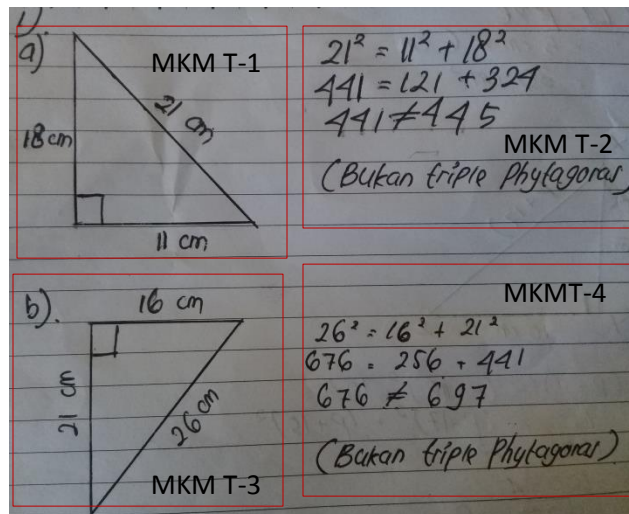 1)
a).
MKM T-1
18 cm
21 cm
11 cm
21² = 11² + 18²
441 = 121 + 324
441 ≠ 445
MKM T-2
(Bukan triple Phytagoras)
b).
16 cm
21 cm
26 cm
MKM T-3
MKMT-4
26² = 16² + 21²
676 = 256 + 441
676 ≠ 697
(Bukan triple Phytagoras)